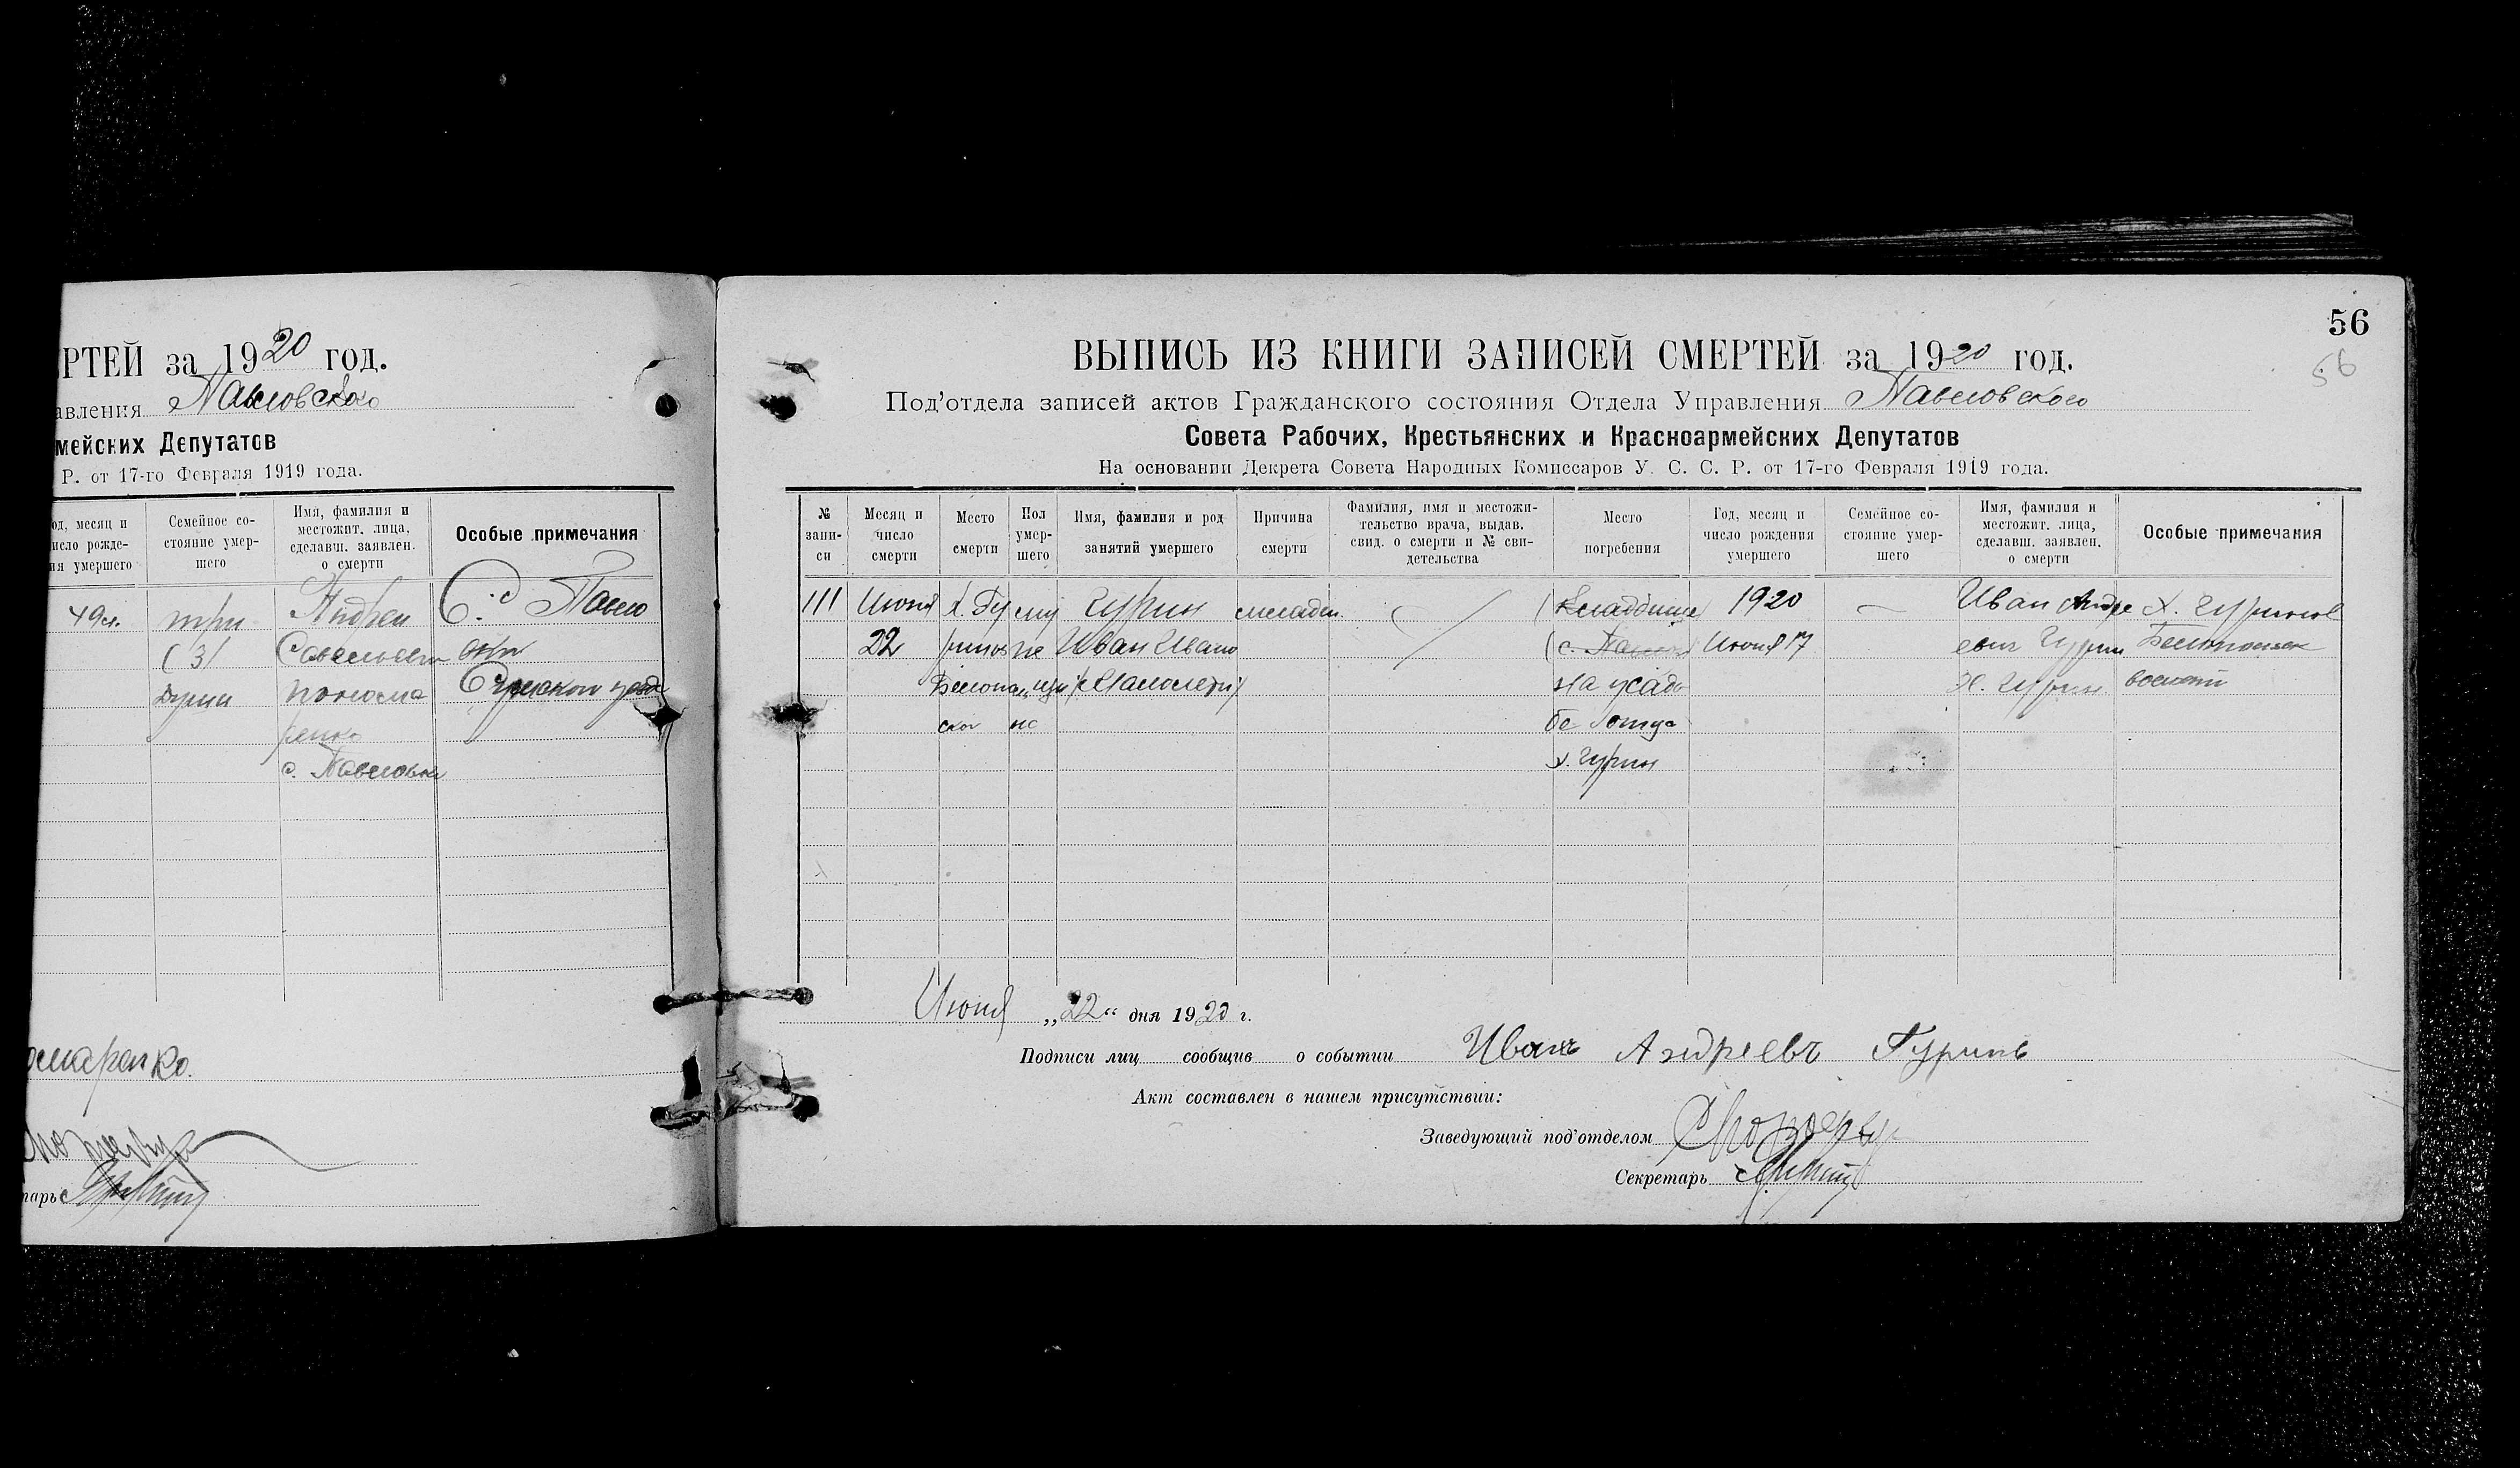 РТЕЙ за 1920 год.
авления Павловского
мейских Депутатов
Р. от 17-го Февраля 1919 года.
од, месяц и
исло рожде-
ия умершего
Семейное со-
стояние умер-
шего
Имя, фамилия и
местожит. лица,
сделавш. заявлен.
о смерти
Особые примечания
49 л.
три
(3)
души
Андрей
Савельевич
Понома
ренко
с. Павловки
С. Павло
вки
Сумского уезда
омаренко.
тарь
56
56
ВЫПИСЬ ИЗ КНИГИ ЗАПИСЕЙ СМЕРТЕЙ за 1920 год.
Под'отдела записей актов Гражданского состояния Отдела Управления Павловского
Совета Рабочих, Крестьянских и Красноармейских Депутатов
На основании Декрета Совета Народных Комиссаров У. С. С. Р. от 17-го Февраля 1919 года.
№
запи-
си
Месяц и
число
смерти
Место
смерти
Пол
умер-
шего
Имя, фамилия и род
занятий умершего
Причина
смерти
Фамилия, имя и местожи-
тельство врача, выдав.
свид. о смерти и № сви-
детельства
Место
погребения
Год, месяц и
число рождения
умершего
Семейное со-
стояние умер-
шего
Имя, фамилия и
местожит. лица,
сделавш. заявлен.
о смерти
Особые примечания
111
Июня
22
х. Гу
ринов
Белополь
ской
муж
Гурин
Иван Ивано
(Малолетн)
младен.
(Кладбище)
на усадь
бе отца
х. Гурин
1920
Июня 17
Иван Андре
евич Гурин
х. Гурин.
х. Гуринов
Белопольск
волости
Июня „22“ дня 1920 г.
Подписи лиц сообщив о событии Иван Андреевъ Гуринъ
Акт составлен в нашем присутствии:
Заведующий под'отделом
Секретарь